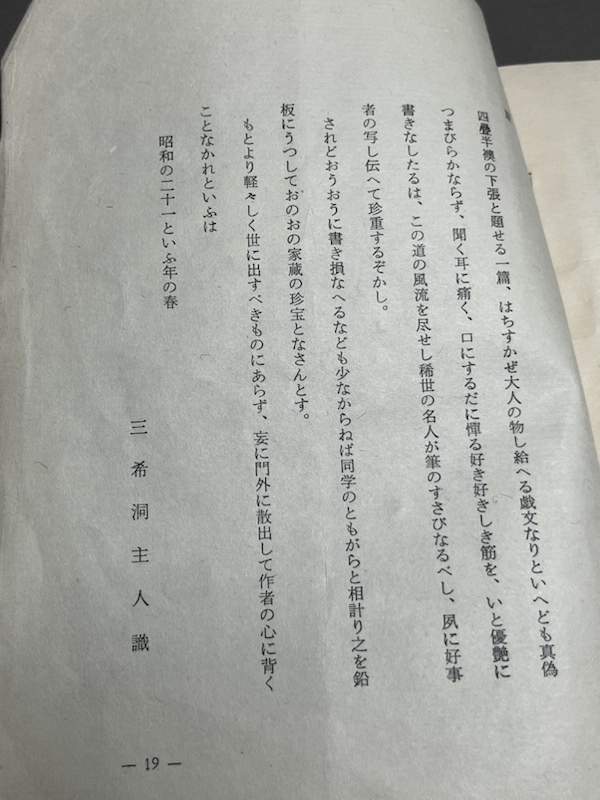 四畳半襖の下張と題せる一篇、はちすかぜ大人の物し給へる戯文なりといへども真偽
つまびらかならず、聞く耳に痛く、口にするだに憚る好き好きしき筋を、いと優艶に
書きなしたるは、この道の風流を尽せし稀世の名人が筆のすさびなるべし、夙に好事
者の写し伝へて珍重するぞかし。
されどおうおうに書き損なへるなども少なからねば同学のともがらと相計り之を鉛
板にうつしておのおの家蔵の珍宝となさんとす。
もとより軽々しく世に出すべきものにあらず、妄に門外に散出して作者の心に背く
ことなかれといふは
昭和の二十一といふ年の春
三希洞主人識
— 19 —